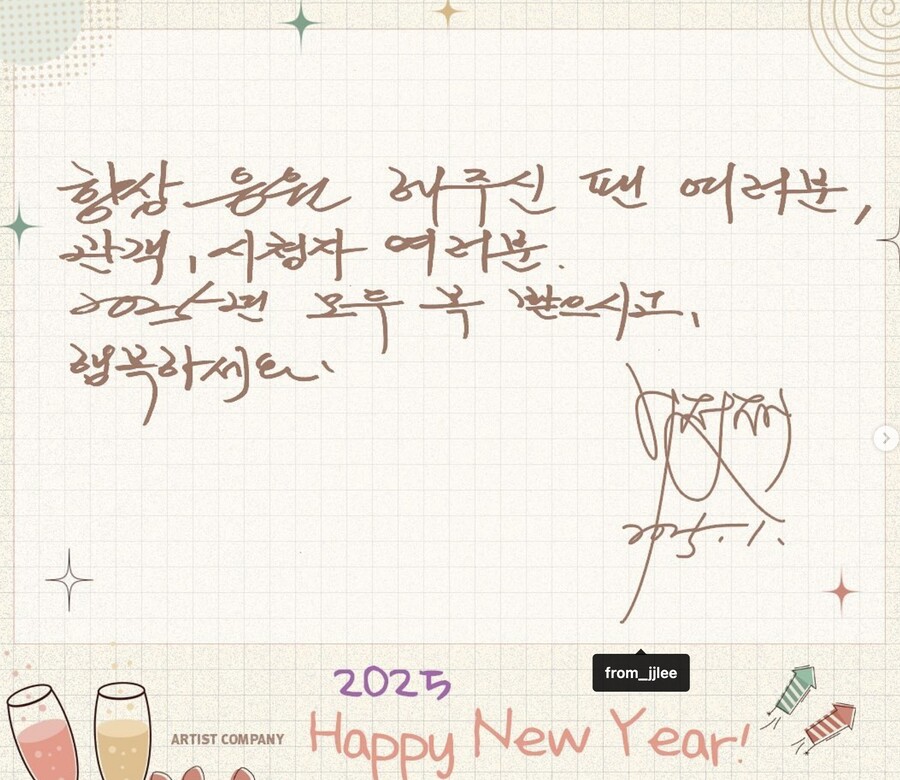 항상 응원 해주신 팬 여러분,
관객, 시청자 여러분.
2025년 모두 복 받으시고,
행복하세요.
이정재
2025. 1.
from_jjlee
2025
ARTIST COMPANY
Happy New Year!